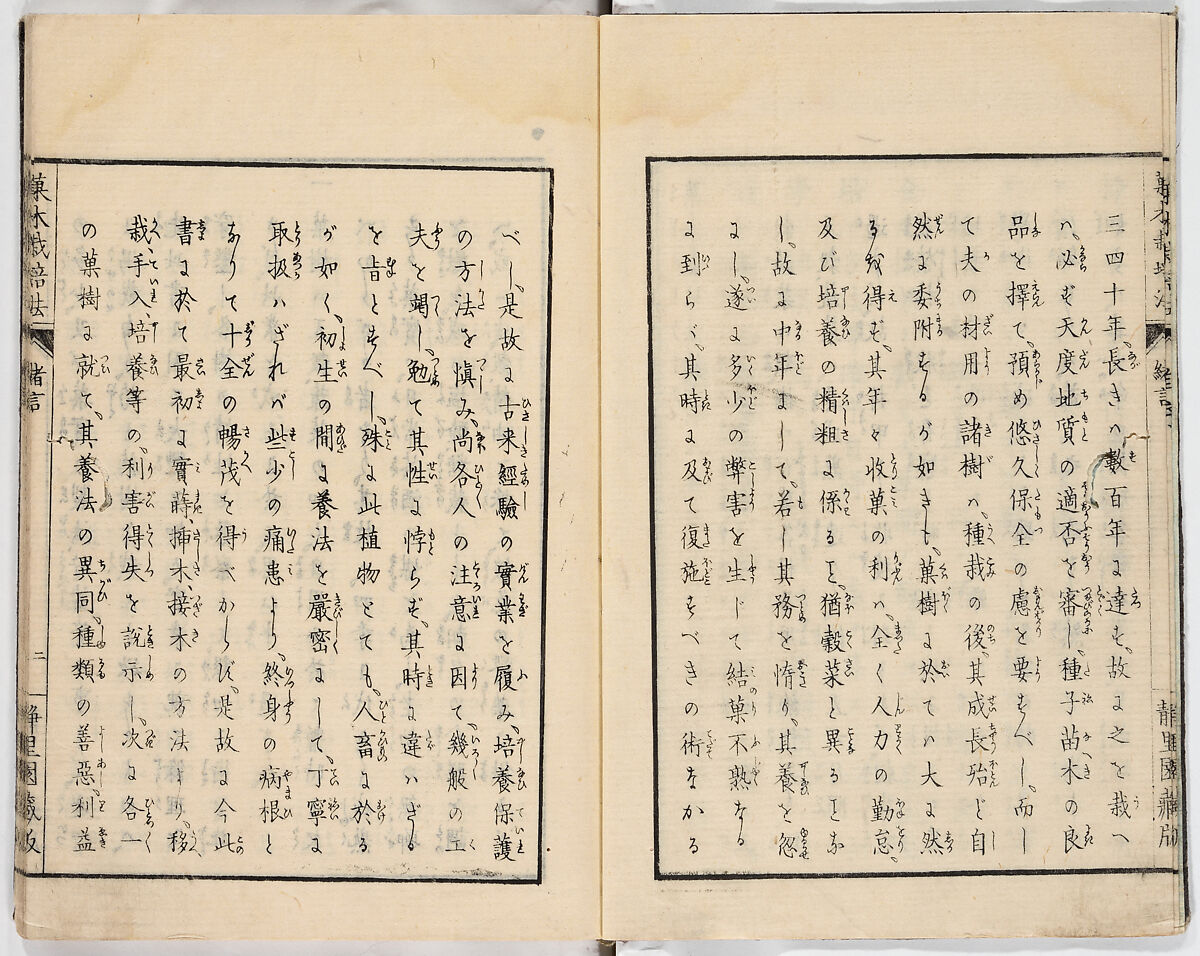 三四十年、長きハ數百年に達す、故に之を栽へ
ハ、必ず天度地質の適否を審し、種子苗木の良
品を擇て、預め悠久保全の慮を要すべし、而し
て夫の材用の諸樹ハ、種栽の後、其成長殆ど自
然に委附するが如きも、菓樹に於てハ大に然
る以得ず、其年々收菓の利ハ、全く人力の勤怠、
及び培養の精粗に係ること、猶穀菜と異ることな
し、故に中年にして、若し其務を惰り、其養を忽
にし、遂に多少の弊害を生じて結菓不熟なる
に到らバ、其時に及て復施すべきの術なかる
菓木栽培法
緒言
靜里園藏版
べし、是故に古来經驗の實業を履み、培養保護
の方法を愼み、尚各人の注意に因て、幾般の工
夫を竭し、勉て其性に悖らず、其時に違ハざる
を旨とすべし、殊に此植物とても、人畜に於る
が如く、初生の間に養法を嚴密にして、丁寧に
取扱ハざれバ、些少の痛患より、終身の病根と
なりて十全の暢茂を得べからず、是故に今此
書に於て最初に實蒔、揷木、接木の方法より、移
栽、手入、培養等の、利害得失を說示し、次に各一
の菓樹に就て、其養法の異同、種類の善惡、利益
菓木栽培法
緒言
二
靜里園藏版